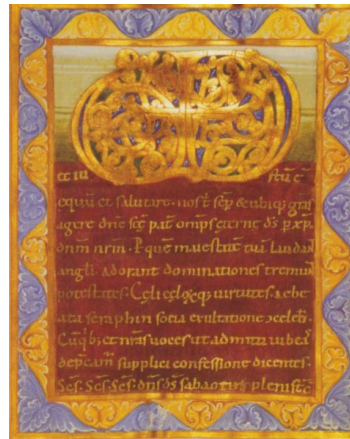 et iu stū ē
equū et salutare · nos t̄ sēp & ubiq; grās
agere dn̄e sc̄e pat̄ omp̄s &terne ds̄ p xp̄m
dnm̄ nrm̄ · P quē maiestatē tuā laudant
angli Adorant dominationes tremunt
potestates · Cęli cęloȝq; uirtutes ac be
ata seraphin socia exultatione ɔcelebr̄ ·
Cū qb; et nr̄as uoces ut admitti iubeas
dep̄camr̄ supplici confessione dicentes ·
Sc̄s · Sc̄s · Sc̄s · dn̄s ds̄ sabaoth pleni st̄ c̄